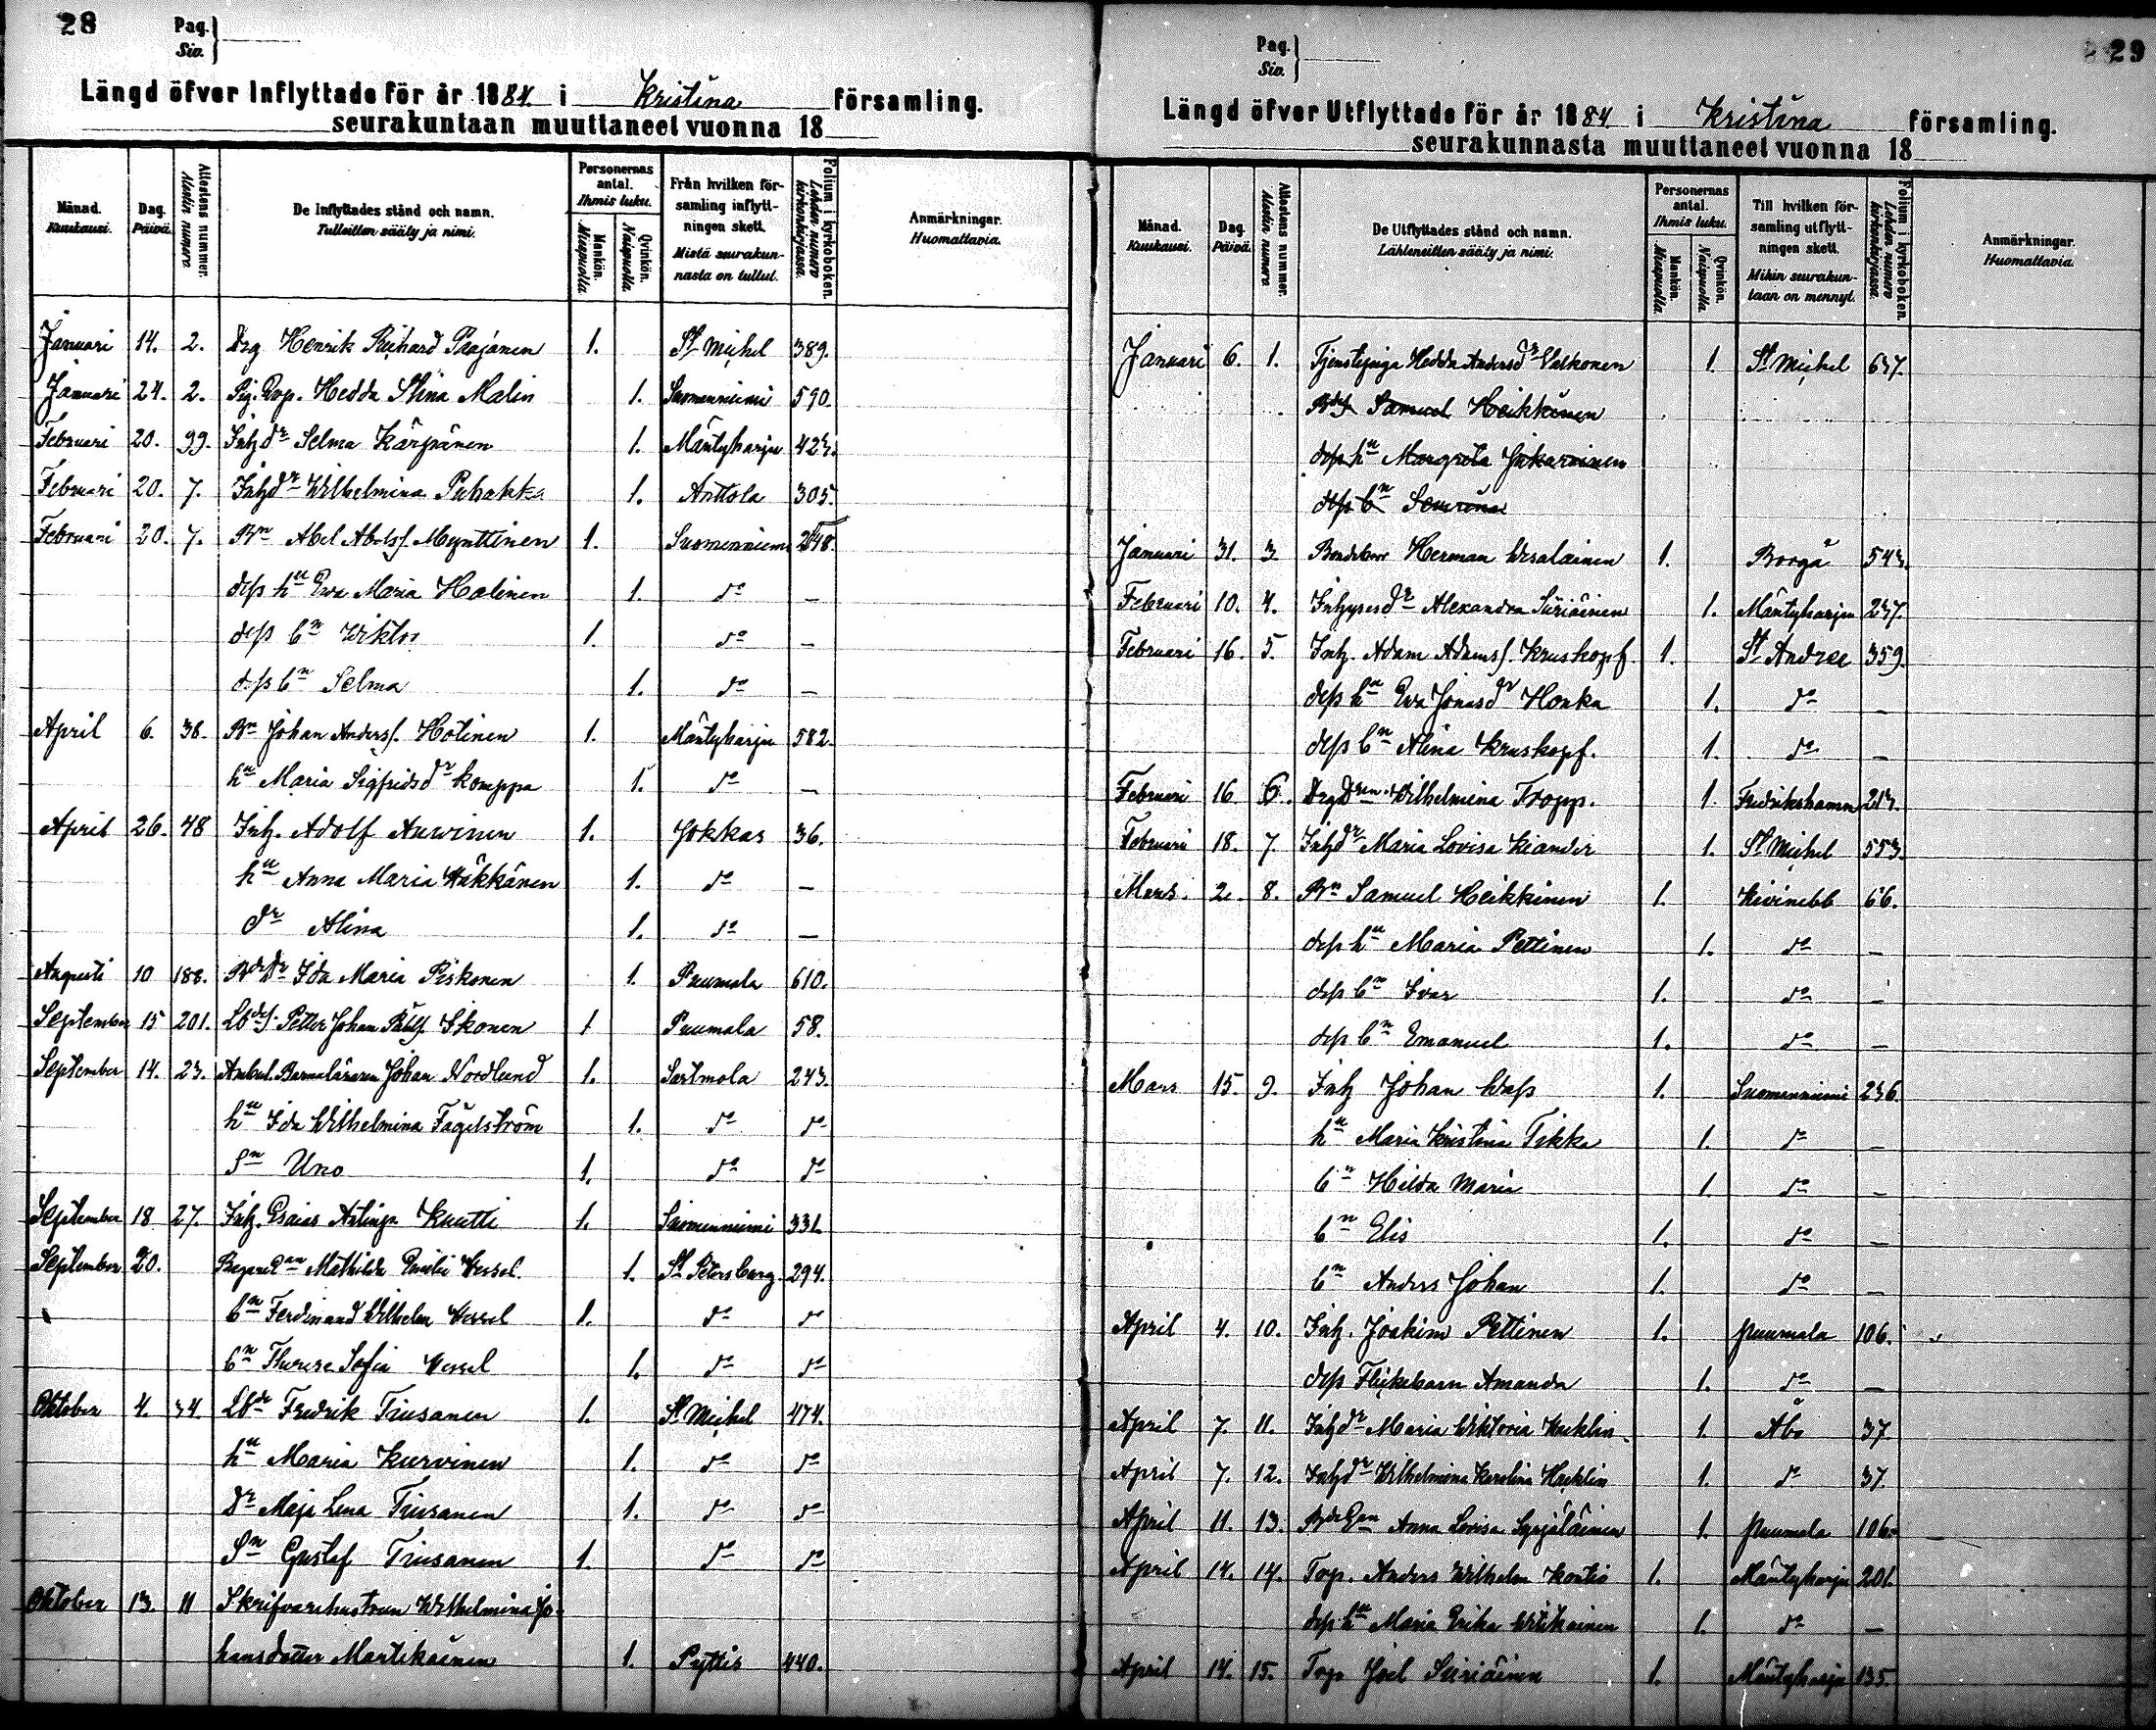 28
Pag.
Siv.
Längd öfver Inflyttade för år 1884 i Kristina församling.
seurakuntaan muuttaneet vuonna 18
Månad. Kuukausi.
Dag. Päivä.
Attestens nummer. Alestin numero
De Inflyttades stånd och namn. Tulleitten sääty ja nimi.
Personernas antal. Ihmis luku.
Mankön. Miespuolia
Qvinkön. Naispuolia
Från hvilken församling inflyttningen skett.
Mistä seurakunnasta on tullut.
Folium i kyrkoboken. Lehden numero kirkonkirjassa.
Anmärkningar. Huomattavia.
Januari 14. 2. Drg Henrik Richard Paajanen 1. St Michel 389.
Januari 24. 2. Pig. Hedda Stina Malin 1. Suomenniemi 590.
Februari 20. 99. Inhdr Selma Kärpänen 1. Mäntyharju 423.
Februari 20. 7. Inhdr Wilhelmina Puhakka 1. Anttola 305.
Februari 20. 7. Bn Abel Abelsf. Mynttinen 1. Suomenniemi 248.
dess hu Eva Maria Halinen 1. do —
dess bn Wiktor 1. do —
dess bn Selma 1. do —
April 6. 38. Bn Johan Andersf. Hotinen 1. Mäntyharju 582.
hu Maria Sigfridsdr Komppa 1. do —
April 26. 48 Inh. Adolf Auvinen 1. Jokkas 36.
hu Anna Maria Häkkänen 1. do —
dr Alina 1. do —
Augusti 10 188. Bdedr Ida Maria Piskonen 1. Puumala 610.
September 15 201. Lbdes. Petter Johan Ikonen 1 Puumala 58.
September 14. 23. Ambul. Barnaläraren Johan Nordlund 1. Säkmola 243.
hu Ida Wilhelmina Fagelström 1. do do
Sn Uno 1. do do
September 18 27. Inh. Esaias Knutti 1. Suomenniemi 331.
September 20. Mathilda Emilie Wessel. 1. St Petersburg 294.
bn Ferdinand Wilhelm Wessel 1. do do
bn Therese Sofia Wessel 1. do do
Oktober 4. 34. Lbde Fredrik Tiusanen 1. St Michel 474.
hu Maria Kurvinen 1. do do
Dr Maja Lena Tiusanen 1. do do
Sn Gustaf Tiusanen 1. do do
Oktober 13. 11 Skrifvarehustrun Wilhelmina Jo-
hansdotter Martikainen 1. Pyttis 440.
29
Pag.
Siv.
Längd öfver Utflyttade för år 1884 i Kristina församling.
seurakunnasta muuttaneet vuonna 18
Månad. Kuukausi.
Dag. Päivä.
Attestens nummer. Alestin numero
De Utflyttades stånd och namn. Lähteneitten sääty ja nimi.
Personernas antal. Ihmis luku.
Mankön. Miespuolia
Qvinkön. Naispuolia
Till hvilken församling utflyttningen skett.
Mihin seurakuntaan on mennyt.
Folium i kyrkoboken. Lehden numero kirkonkirjassa.
Anmärkningar. Huomattavia.
Januari 6. 1. Tjenstepiga Hedda Andersdr Valkonen 1. St Michel 637.
Samuel Heikkinen
dess hu Margreta Inkaroinen
dess bn Severina
Januari 31. 3. Herman Wesalainen 1. Borgå 543.
Februari 10. 4. Inhysesdr Alexandra Siiriäinen 1. Mäntyharju 237.
Februari 16. 5. Inh. Adam Adamsf. Kruskopf 1. St Andree 359.
dess hu Eva Jonasdr Honka 1. do —
dess bn Alina Kruskopf. 1. do —
Februari 16. 6. Wilhelmina Tropp. 1. Fredrikshamn 213.
Februari 18. 7. Inhdr Maria Lovisa Kiander 1. St Michel 553.
Mars. 2. 8. Bn Samuel Heikkinen 1. Kivinebb 66.
dess hu Maria Pettinen 1. do —
dess bn Ivar 1. do —
dess bn Emanuel 1. do —
Mars 15. 9. Inh Johan Wass 1. Suomenniemi 236.
hu Maria Kristina Tikka 1. do —
bn Hilda Maria 1. do —
bn Elis 1. do —
bn Anders Johan 1. do —
April 4. 10. Inh. Joakim Pettinen 1. Puumala 106.
dess Flickebarn Amanda 1. do —
April 7. 11. Inhdr Maria Wiktoria Hacklin 1. Åbo 37.
April 7. 12. Inhdr Wilhelmina Karolina Hacklin 1. do 37.
April 11. 13. Anna Lovisa Syrjäläinen 1. Puumala 106.
April 14. 14. Torp. Anders Wilhelm Kontio 1. Mäntyharju 201.
dess hu Maria Erika Witikainen 1. do —
April 14. 15. Torp Joel Siiriäinen 1. Mäntyharju 135.